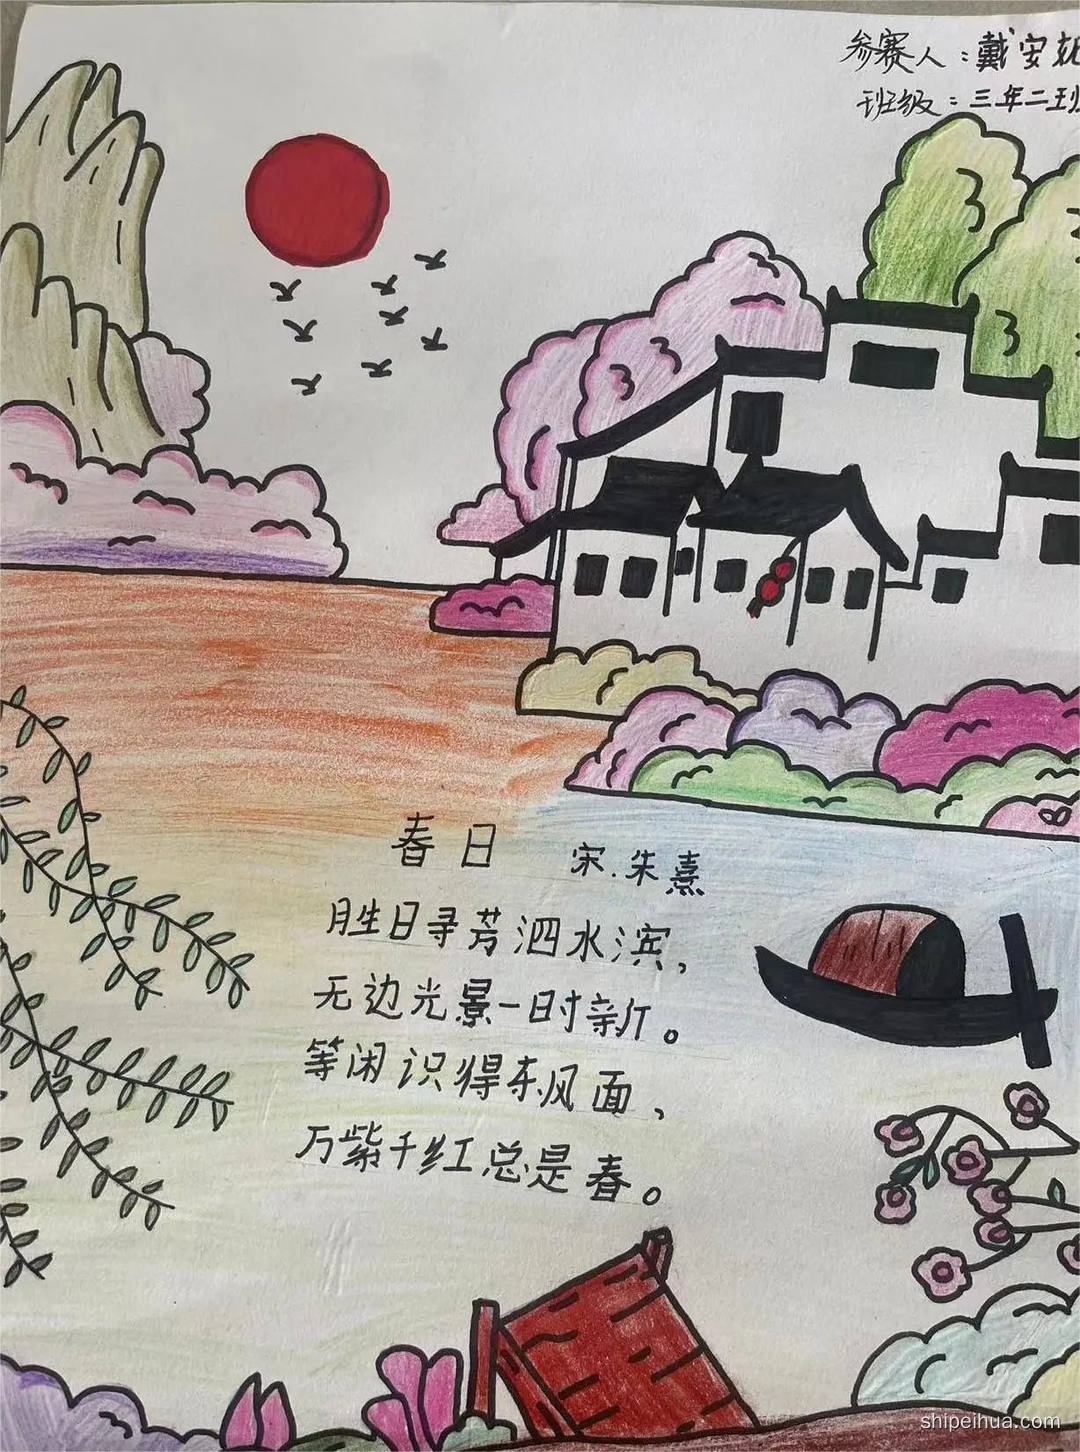 参赛人：戴安
班级：三年二班
春日 宋.朱熹
胜日寻芳泗水滨，
无边光景一时新。
等闲识得东风面、
万紫千红总是春。
shipeihua.com